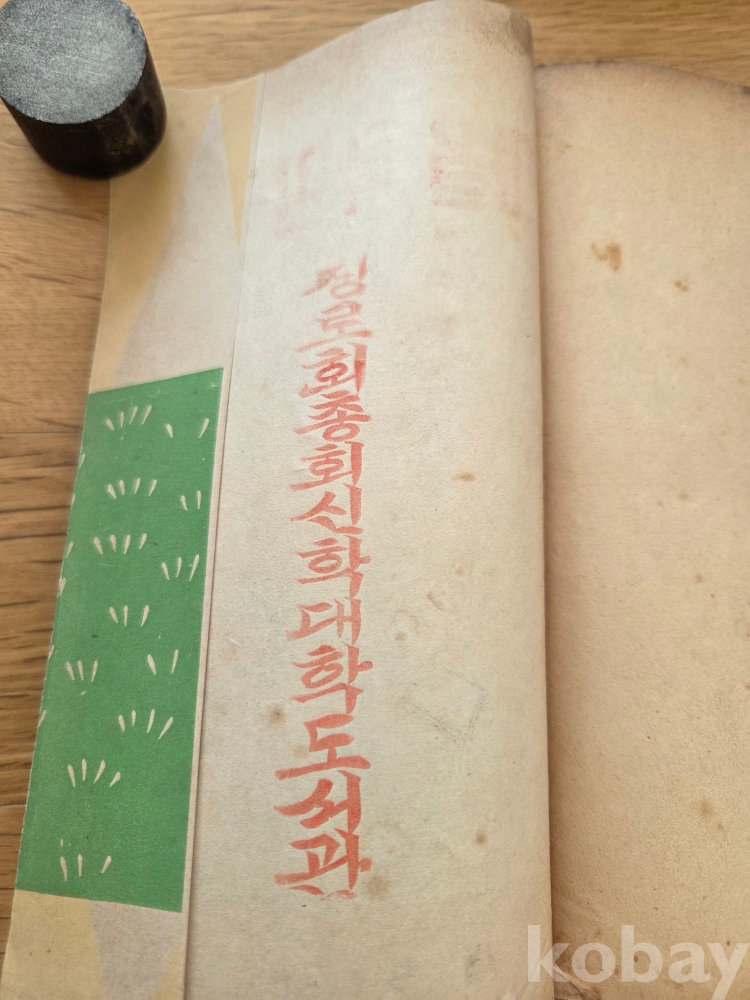 장로회총회신학대학도쇠관
kobay